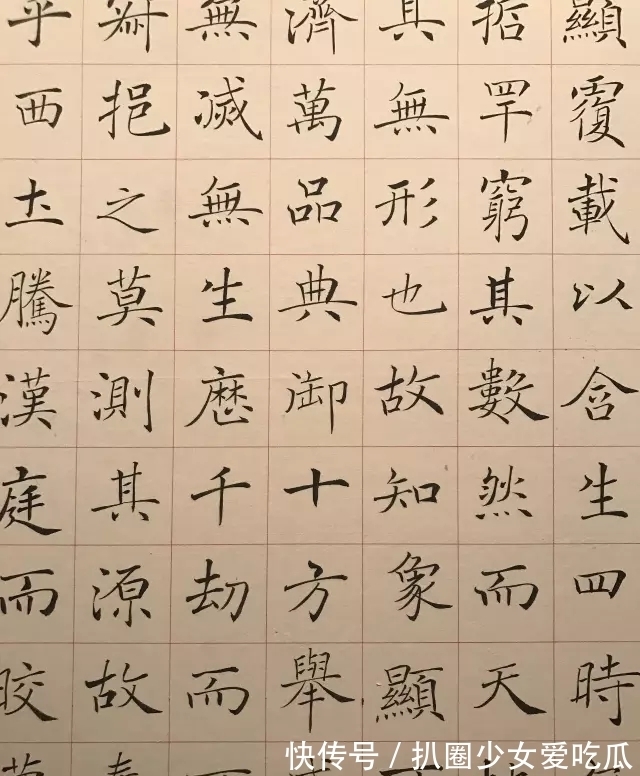 顯覆載以含生四時
哲罕窮其數然而天
其無形也故知象顯
濟萬品典御十方舉
無滅無生歷千劫而
挹之莫測其源故
乎西土騰漢庭而皎
快传号 / 扒圈少女爱吃瓜